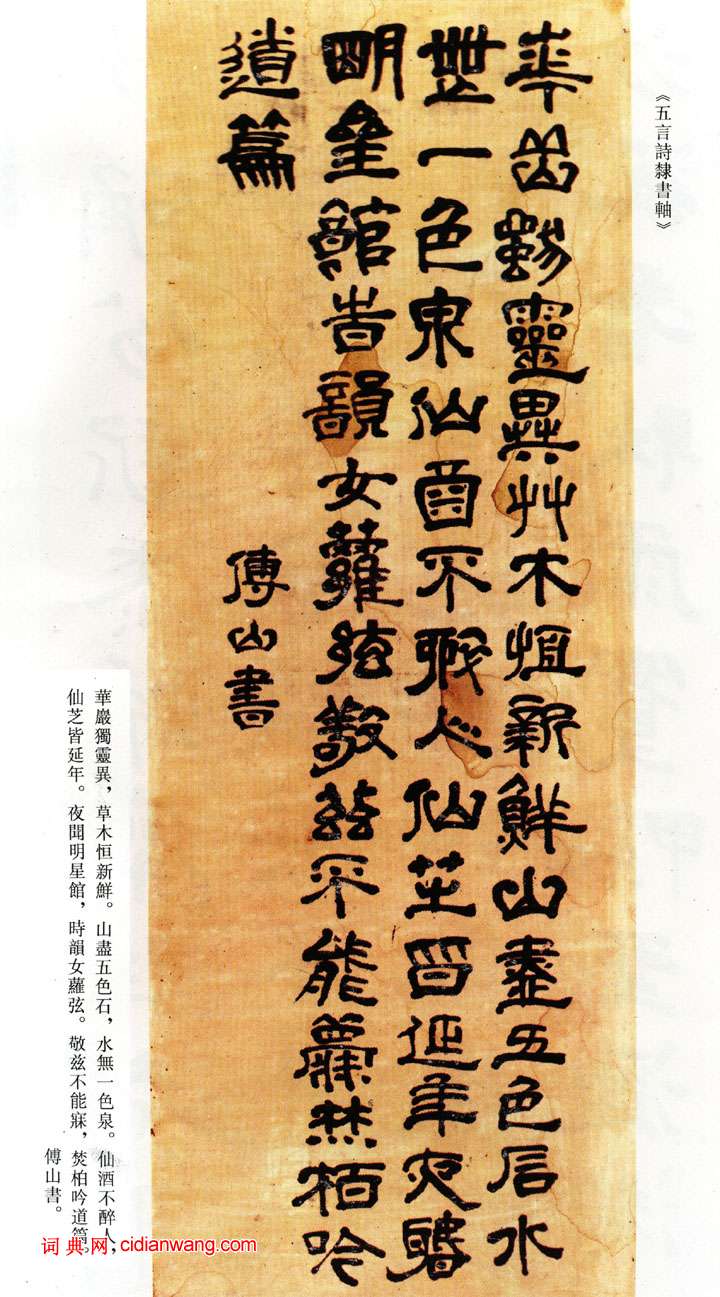 《五言詩隸書軸》
華嵒獨靈異艸木恒新鮮山盡五色石水
無一色泉仙酒不醉人仙芝皆延年夜聞
明星館旹韻女蘿弦敬茲不能寐焚栢吟
道篇
傅山書
華巖獨靈異，草木恒新鮮。山盡五色石，水無一色泉。仙酒不醉人，
仙芝皆延年。夜聞明星館，時韻女蘿弦。敬兹不能寐，焚柏吟道篇。
傅山書。
词典网:cidianwang.com